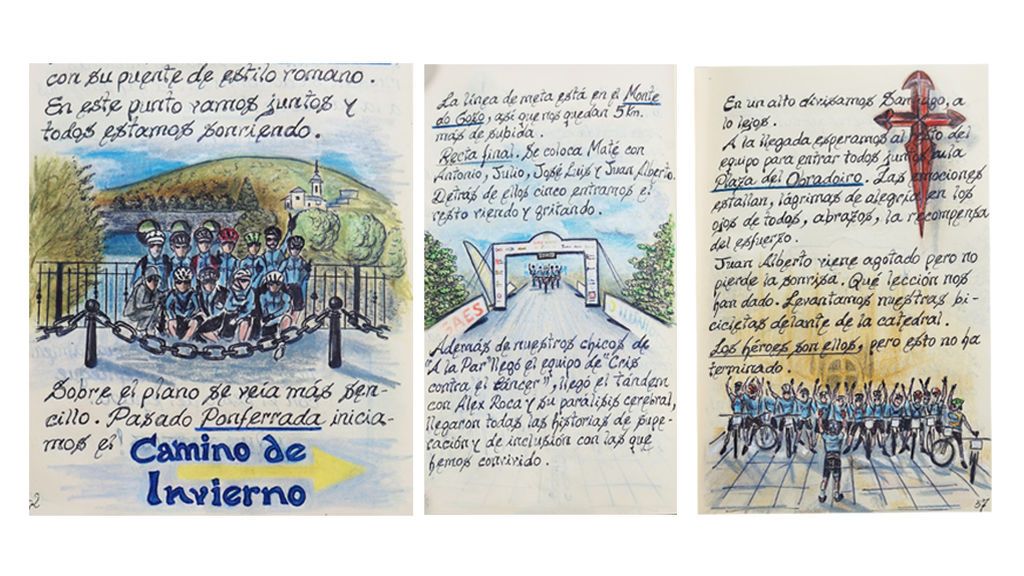 con su puente de estilo romano.
En este punto vamos juntos y
todos estamos sonriendo.
Sobre el plano se veía más sen-
cillo. Pasado Ponferrada inicia-
mos el
Camino de
Invierno
La línea de meta está en el Monte
do Gozo, así que nos quedan 5 Km.
más de subida.
Recta final. Se coloca Maté con
Antonio, Julio, José Luis y Juan Alberto.
Detrás de ellos cinco entramos el
resto riendo y gritando.
SAES
Además de nuestros chicos de
"A la Par" llegó el equipo de "Cris
contra el Cáncer", llegó el tándem
con Alex Roca y su parálisis cerebral,
llegaron todas las historias de supe-
ración y de inclusión con las que
hemos convivido.
En un alto divisamos Santiago, a
lo lejos.
A la llegada esperamos al resto del
equipo para entrar todos juntos a la
Plaza del Obradoiro. Las emociones
estallan, lágrimas de alegría en los
ojos de todos, abrazos, la recompensa
del esfuerzo.
Juan Alberto viene agotado pero no
pierde la sonrisa. Qué lección nos
han dado. Levantamos nuestras bi-
cicletas delante de la catedral.
Los héroes son ellos, pero esto no ha
terminado.
57